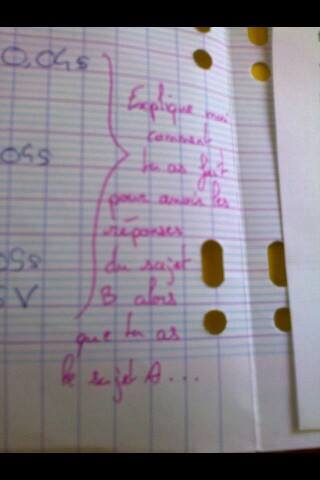 0,04s
Explique moi
comment
tu as fait
04s
pour avoir les
réponses
du sujet
B alors
V
que tu as
le sujet A...